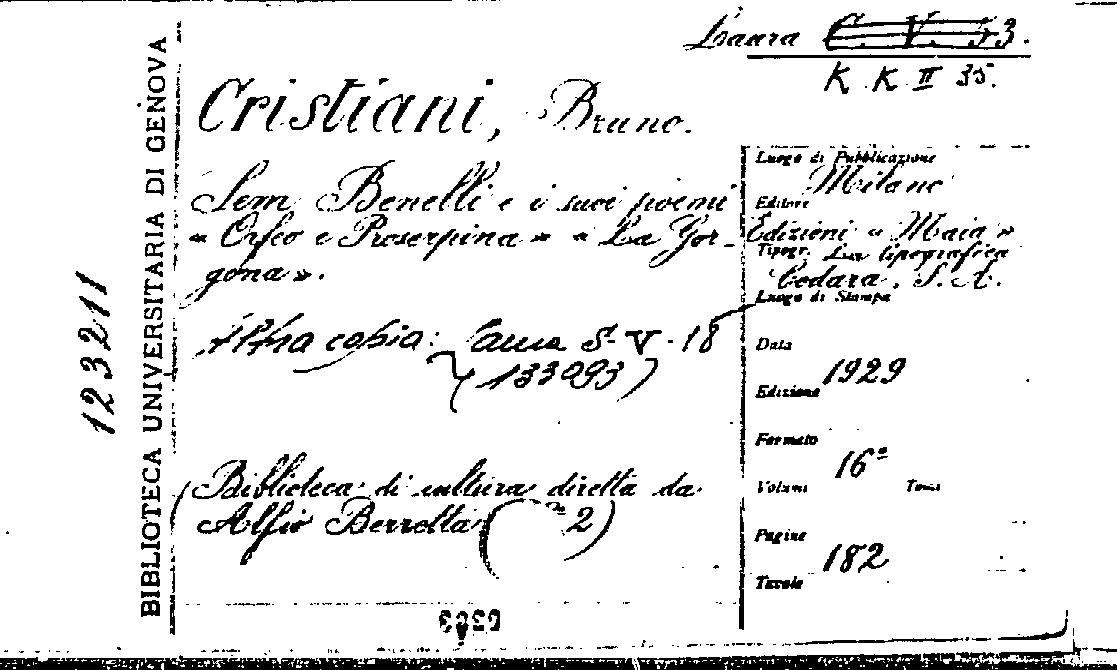 Laura C. V. 53.
K. K. II 35.
BIBLIOTECA UNIVERSITARIA DI GENOVA
123211
Cristiani, Bruno.
Sem Benelli e i suoi poemi
« Orfeo e Proserpina » « La Gor-
gona ».
Altra copia: Laura S. V. 18
(133093)
(Biblioteca di cultura diretta da
Alfio Berretta (n 2)
Luogo di Pubblicazione
Milano
Editore
Edizioni « Maia »
Tipogr. La tipografica
Codara, S. A.
Luogo di Stampa
Data
1929
Edizione
Formato
16º
Volumi Tomi
Pagine
182
Tavole